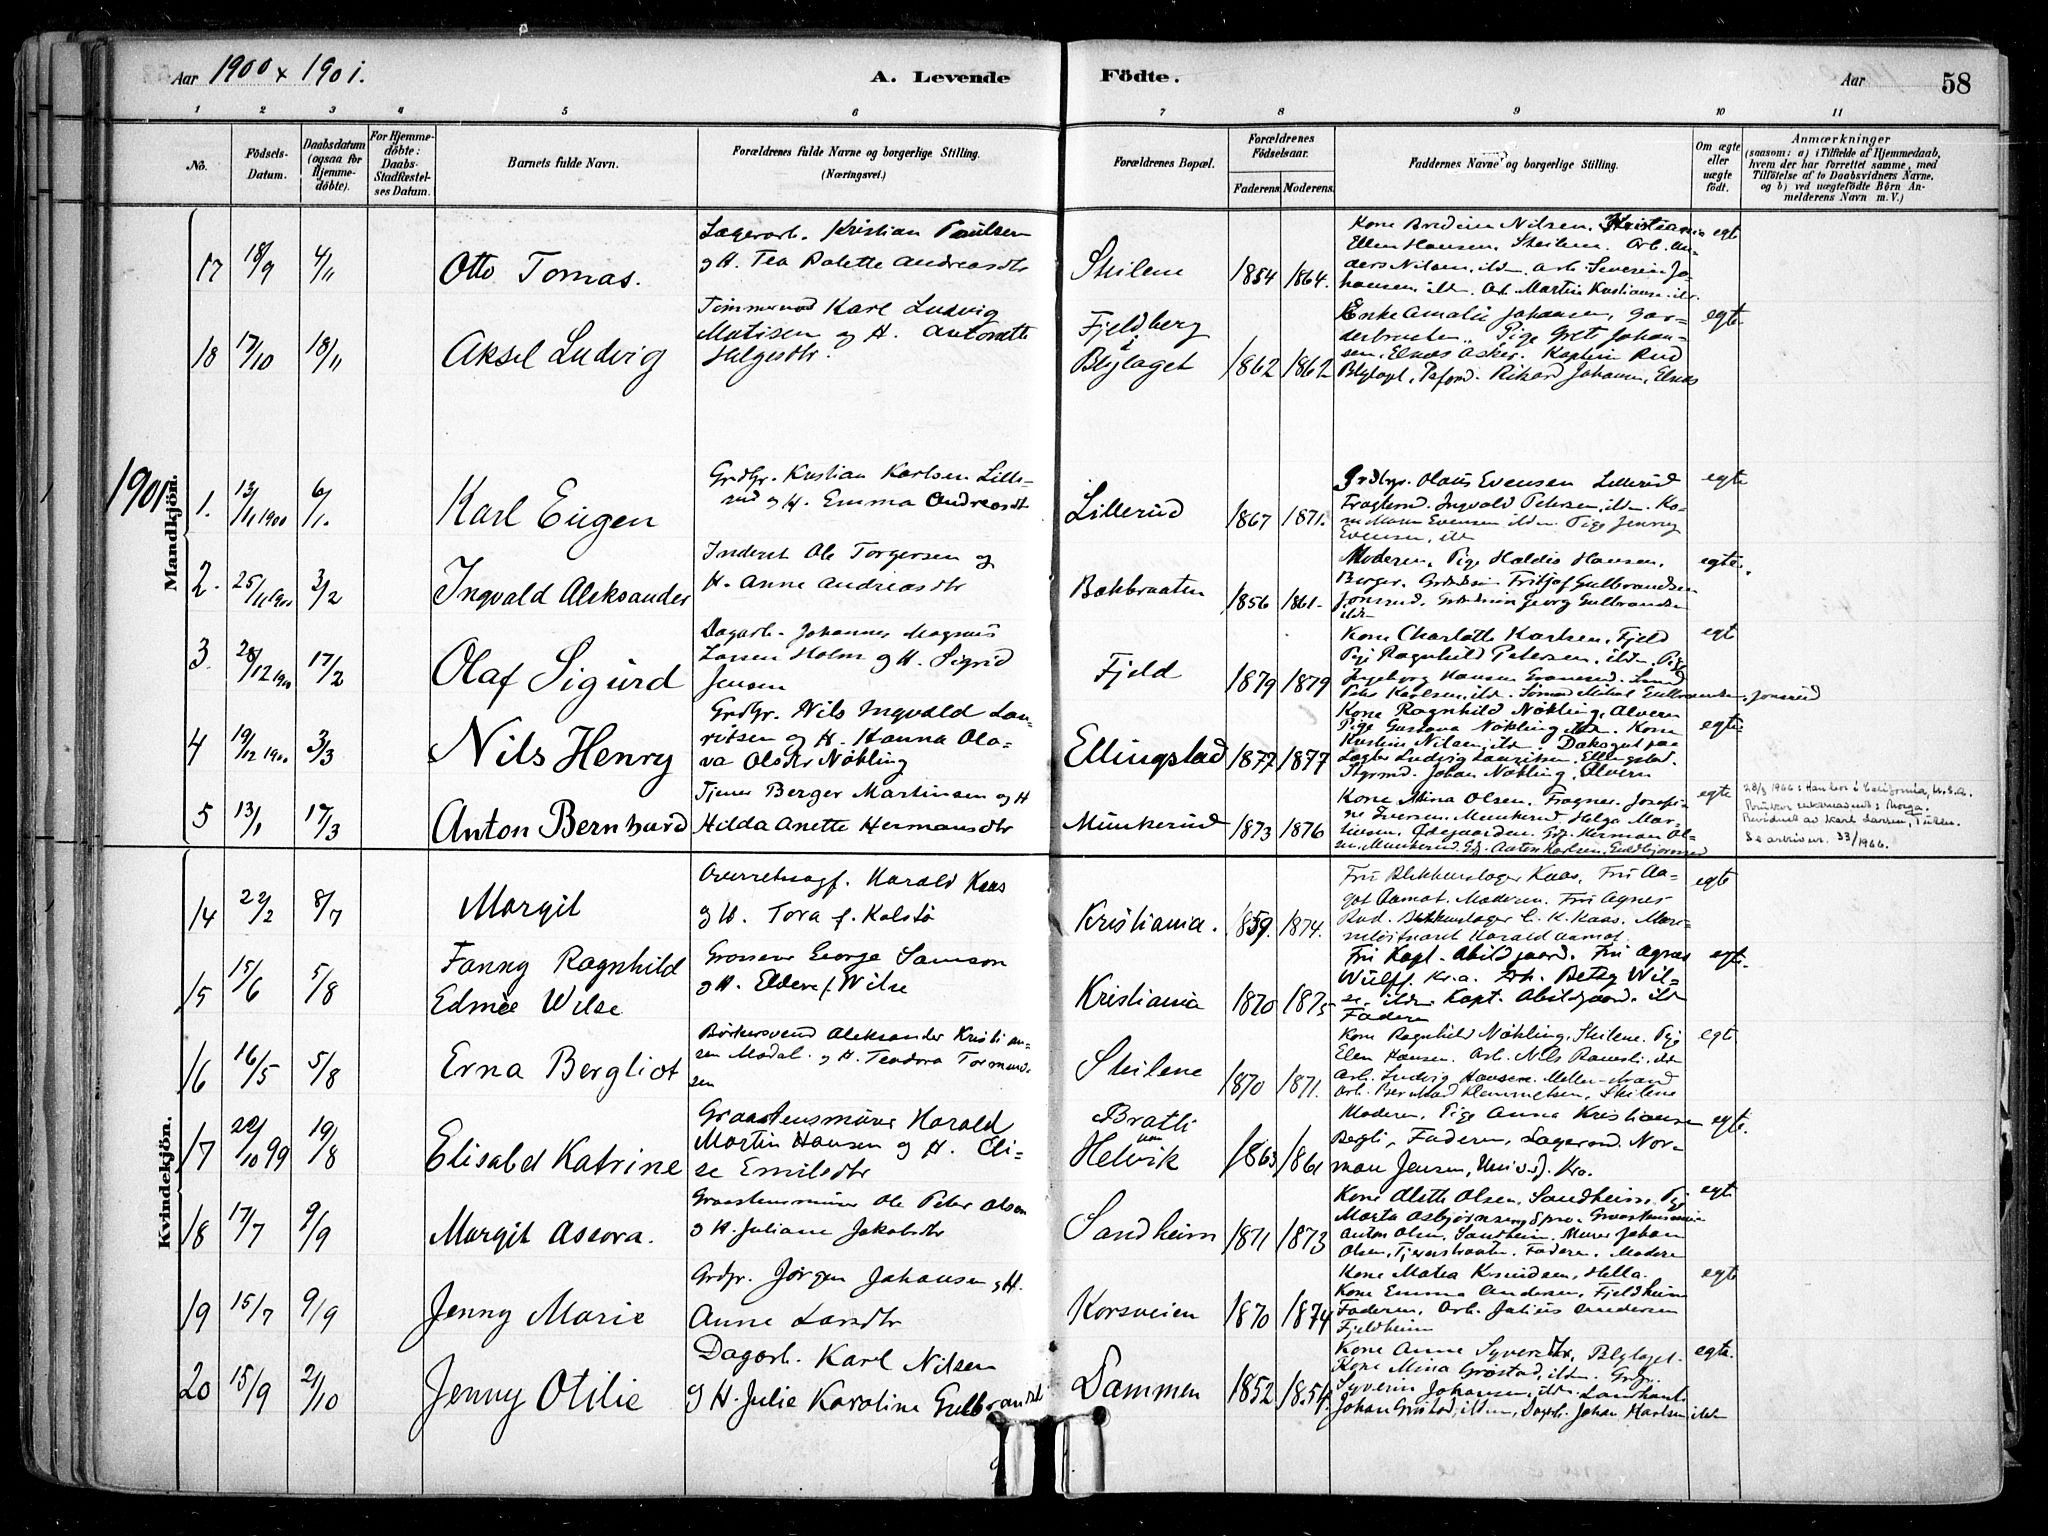 Aar 1900 x 1901.
A. Levende Födte.
Aar 58
1 2 3 4 5 6 7 8 9 10 11
No.
Födsels-Datum.
Daabsdatum (ogsaa for Hjemme-döbte).
For Hjemme-döbte: Daabs-Stadfæstel-ses Datum.
Barnets fulde Navn.
Forældrenes fulde Navne og borgerlige Stilling. (Næringsvei.)
Forældrenes Bopæl.
Forældrenes Födselsaar.
Faderens. Moderens.
Faddernes Navne og borgerlige Stilling.
Om ægte eller uægte födt.
Anmærkninger
(saasom: a) i Tilfælde af Hjemmedaab,
hvem der har forrettet samme, med
Tilföielse af to Daabsvidners Navne.
og b) ved uægtefödte Börn An-
melderens Navn m. V.)
17 18/9 4/11 Otto Tomas.
Lagerarb. Kristian Paulsen
og H. Tea Palette Andreasdtr
Skilene 1854 1864.
Kone Nilsen, Kristiania
Ellen Hansen, Skilene. Arb. An-
ders Nilsen, ildr. Arb. Severin Jo-
hansen ildr. Arb. Martin Kristianse. ildr.
egte
18 17/10 18/11 Aksel Ludvig
Tømmermd Karl Ludvig
Matisen og H. Antonette
Helgesdtr.
Fjeldberg
i
Blylaget 1862 1862
Enke Amalie Johansen, Gar-
Pige Grete Johan-
sen, Elnæs Asker. Kaptein Rud
Blylaget, Rikard Johansen, Elnæs
egte.
1901
Mandkjön.
1. 13/11 1900 6/1. Karl Eugen
Grdbr. Kristian Karlsen Lille-
rud og H. Emma Andreasdtr
Lillerud 1867 1871.
Grdbr. Olaus Evensen Lillerud
Ingvald Petersen, ildr. Ko-
ne Maren Evensen ildr. Pige Jenny
Evensen, ildr
egte
2. 25/11 1900 3/2 Ingvald Aleksander
Inderst Ole Torgersen og
H. Anne Andreasdtr
Bakbraaten 1856 1861.
Moderen, Pige Haldis Hansen,
Berger. Fritjof Gulbrandsen
Jonsrud. Georg Gulbrandsen
ildr
egte.
3. 28/12 1900 17/2 Olaf Sigurd
Dagarb. Johannes Magnus
Larsen Holm og H. Sigrid
Jensen
Fjeld 1879 1879
Kone Charlotte Karlsen, Fjeld
Pige Ragnhild Petersen, ildr. Pige
Ingeborg Hansen Smed
Peter Karlsen, ildr. Sømd Mikal Gulbrandsen, Jonsrud
egte
4 19/12 1900 3/3 Nils Henry
Grdbr. Nils Ingvald Lau-
ritsen og H. Hanna Ola-
va Olsdtr Nøkling
Ellingstad 1877 1877
Kone Ragnhild Nøkling, Alvern
Pige Gustava Nøkling ildr. Kone
Kristine Nilsen, ildr.
Ludvig Lauritsen, Ellingstad.
Styrmd. Johan Nøkling, Alvern
egte.
5 13/1 17/3 Anton Bernhard
Tjener Berger Martinsen og H
Hilda Anette Hermansdtr
Munkerud 1873 1876
Kone Mina Olsen, Fragner. Josefi-
ne Iversen, Munkerud. Helga Mar-
tinsen, Ødegaarden. Grdb. Herman Ol-
sen, Munkerud. Grdb. Anton Karlsen, Guldbjørnrud
egte
28/3 1966: Han bor i California, U.S.A.
Bevidnet av Karl Larsen,
Se arkivnr. 33/1966.
Kvindekjön.
14 22/2 8/7 Margit
Overretssagf. Harald Kaas
og H. Tora f. Kolstø
Kristiania. 1859. 1874.
Fru Blikkenslager Kaas, Fru Aa-
got Aamot. Moderen. Fru Agnes
Rud. Blikkenslager C. K. Kaas. Mari-
neløitnant Harald Aamot
egte
15 15/6 5/8 Fanny Ragnhild
Edmée Wilse
Grosserer George Samson
og H. Eldere f. Wilse
Kristiania 1870 1875
Fru Kapt. Abildgaard. Fru Agnes
Wulff. Kr.a. Frk. Betsy Wil-
se, ildr Kapt. Abildgaard. ildr
Faderen
egte.
16 16/5 5/8 Erna Bergliot
Bødkersvend Aleksander Kristian-
sen Modal. og H. Teodora Tormund-
sen
Skilene 1870 1871.
Kone Ragnhild Nøkling, Skilene. Pige
Elen Hansen. Arb. Nils ildr
Arb. Ludvig Hansen, Mellemstrand
Arb. Bernhard Klemmetsen, Skilene
egte
17 22/10 99 19/8 Elisabet Katrine
Graastensmurer Harald
Martin Hansen og H. Eli-
se Emilsdtr
Bratli
Helvik 1863 1861
Moderen, Pige Anna Kristiansen
Bergli, Faderen, Lagermd. Nor-
man Jensen, Kra.
egte.
18 17/7 9/9 Margit Assora.
Graastensmurer Ole Peter Olsen
og H. Juliane Jakobsdtr
Sandheim 1871 1873
Kone Alette Olsen, Sandheim, Pige
Marta Asbjørnsen, Graastensmurer
Anton Olsen, Sandheim. Murer Johan
Olsen, Tjernsbraaten. Faderen. Moderen
egte
19 15/7 9/9 Jenny Marie
Grdbr. Jørgen Johansen og H.
Anne Larsdtr
Korsveien 1870 1874
Kone Matea Knudsen, Hella.
Kone Emma Andersen, Fjeldheim
Faderen, Arb. Julius Andersen
Fjeldheim
egte
20 15/9 21/10 Jenny Otilie
Dagarb. Karl Nilsen
og H. Julie Karoline Gulbrandsdtr
Dammen 1852 1854.
Kone Anne Syversdtr, Blylaget.
Kone Mina Grøstad, ildr. Grdbr.
Syverin Johansen, ildr. Landhandl.
Johan Grøstad, ildr, Dagarb. Johan Karlsen ildr
egte.